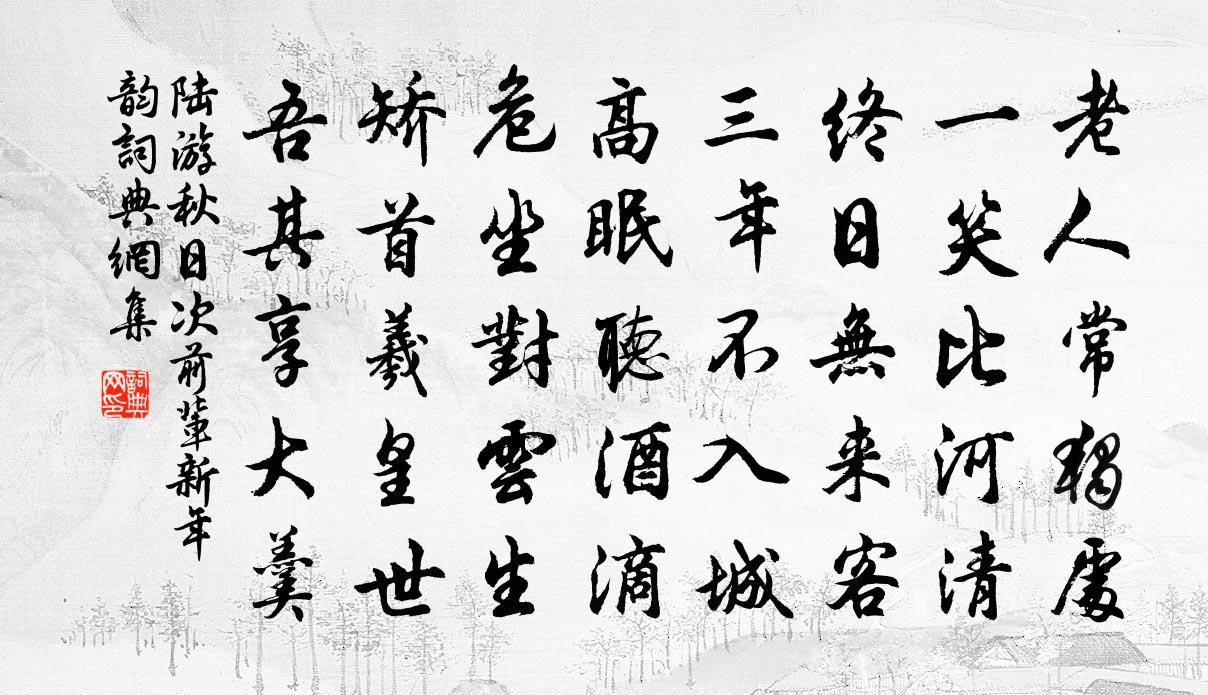 老人常獨處
一笑比河清
終日無来客
三年不入城
高眠聽酒滴
危坐對雲生
矫首羲皇世
吾其享大羹
陆游秋日次前輩新年
韵詞典網集
詞典
网印